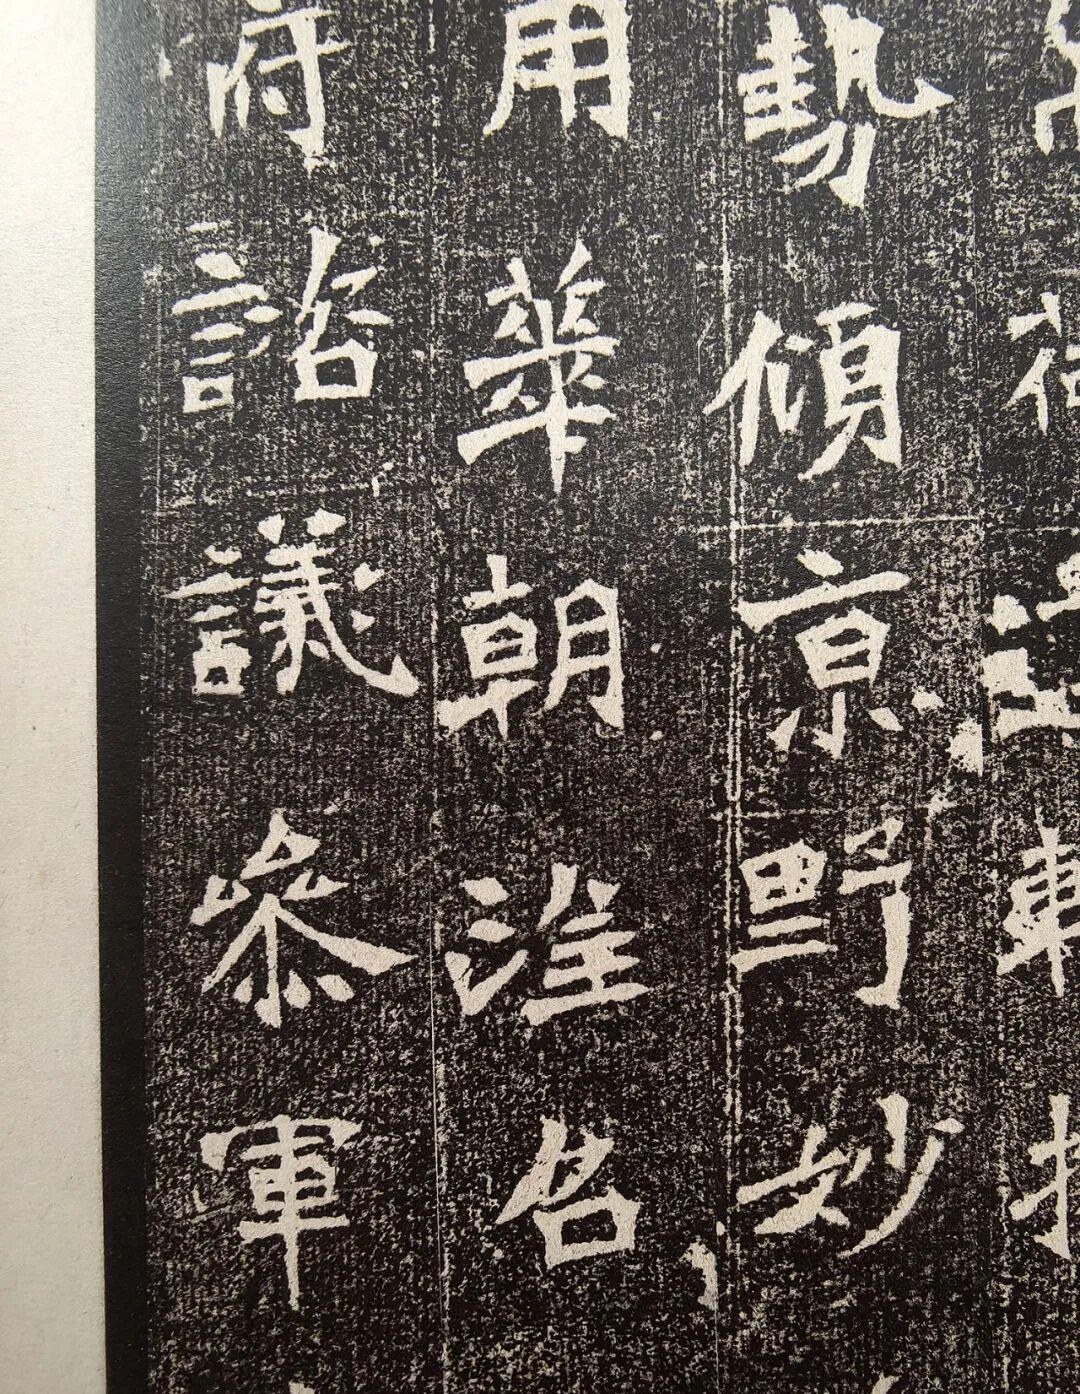 勢傾京野妙
用華朝淫名
府諮議參軍